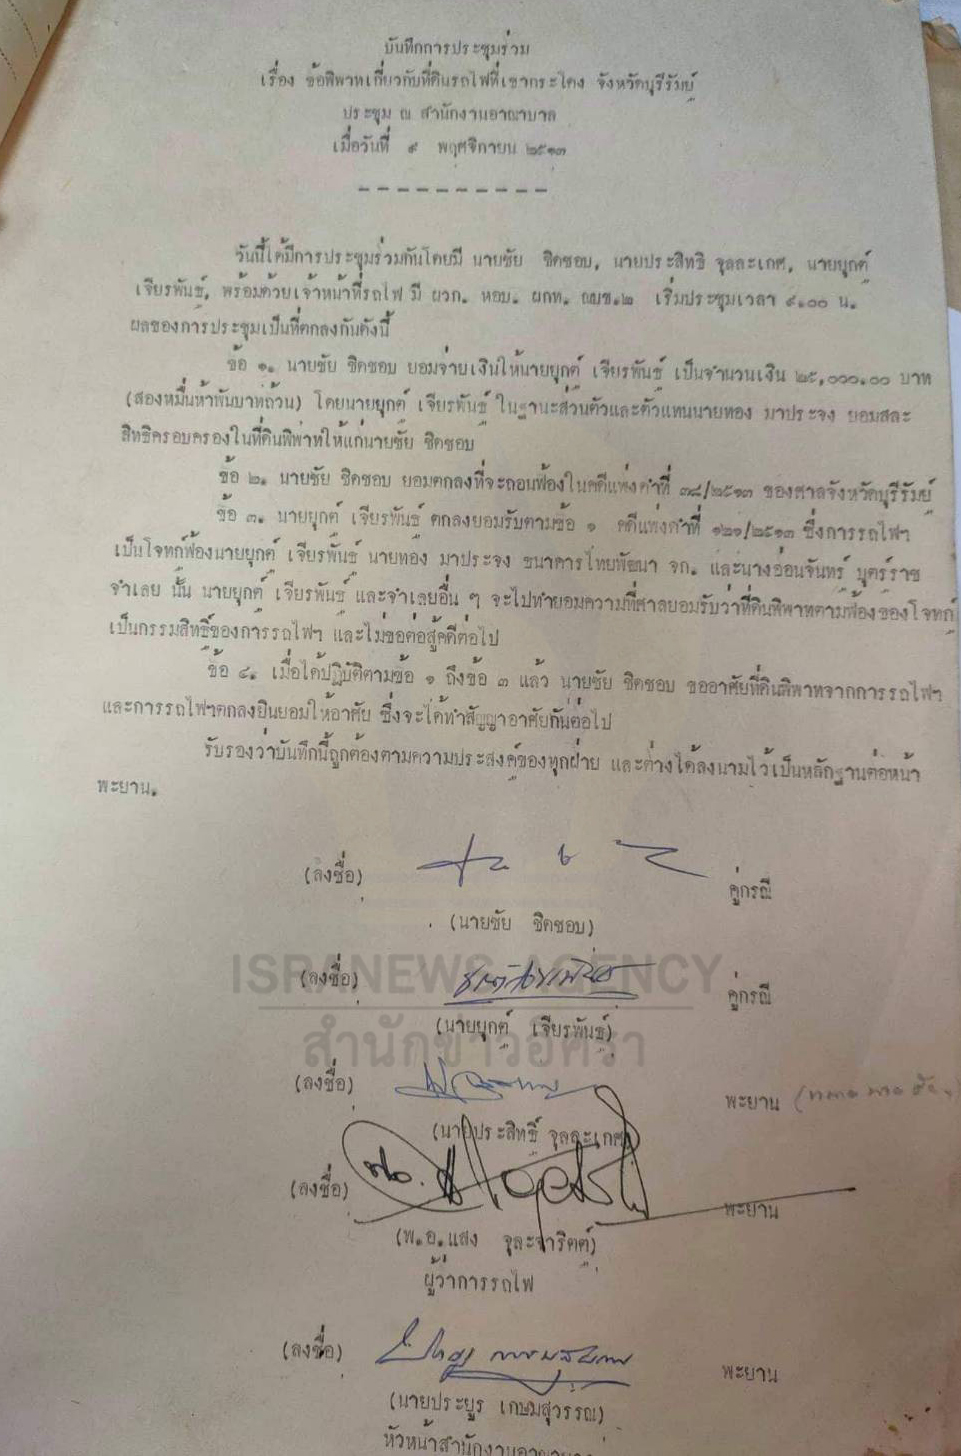 บันทึกการประชุมร่วม
เรื่อง ข้อพิพาทเกี่ยวกับที่ดินรถไฟที่เขากระโดง จังหวัดบุรีรัมย์
ประชุม ณ สำนักงานอาณาบาล
เมื่อวันที่ ๙ พฤศจิกายน ๒๕๑๓
วันนี้ได้มีการประชุมร่วมกันโดยมี นายชัย ชิดชอบ, นายประสิทธิ จุลละเกศ, นายยุกต์
เจียรพันธ์, พร้อมด้วยเจ้าหน้าที่รถไฟ มี ผวก. หอบ. ผกท. ณบข.๒ เริ่มประชุมเวลา ๙.๐๐ น.
ผลของการประชุมเป็นที่ตกลงกันดังนี้
ข้อ ๑. นายชัย ชิดชอบ ยอมจ่ายเงินให้นายยุกต์ เจียรพันธ์ เป็นจำนวนเงิน ๒๕,๐๐๐.๐๐ บาท
(สองหมื่นห้าพันบาทถ้วน) โดยนายยุกต์ เจียรพันธ์ ในฐานะส่วนตัวและตัวแทนนายทอง มาประจง ยอมสละ
สิทธิครอบครองในที่ดินพิพาทให้แก่นายชัย ชิดชอบ
ข้อ ๒. นายชัย ชิดชอบ ยอมตกลงที่จะถอนฟ้องในคดีแพ่งดำที่ ๓๘/๒๕๑๓ ของศาลจังหวัดบุรีรัมย์
ข้อ ๓. นายยุกต์ เจียรพันธ์ ตกลงยอมรับตามข้อ ๑ คดีแพ่งดำที่ ๑๒๑/๒๕๑๓ ซึ่งการรถไฟฯ
เป็นโจทก์ฟ้องนายยุกต์ เจียรพันธ์ นายทอง มาประจง ธนาคารไทยพัฒนา จก. และนางอ่อนจันทร์ บุตร์ราช
จำเลย นั้น นายยุกต์ เจียรพันธ์ และจำเลยอื่น ๆ จะไปทำยอมความที่ศาลยอมรับว่าที่ดินพิพาทตามฟ้องของโจทก์
เป็นกรรมสิทธิ์ของการรถไฟฯ และไม่ขอต่อสู้คดีต่อไป
ข้อ ๔. เมื่อได้ปฏิบัติตามข้อ ๑ ถึงข้อ ๓ แล้ว นายชัย ชิดชอบ ขออาศัยที่ดินพิพาทจากการรถไฟฯ
และการรถไฟฯตกลงยินยอมให้อาศัย ซึ่งจะได้ทำสัญญาอาศัยกันต่อไป
รับรองว่าบันทึกนี้ถูกต้องตามความประสงค์ของทุกฝ่าย และต่างได้ลงนามไว้เป็นหลักฐานต่อหน้า
พะยาน.
(ลงชื่อ) คู่กรณี
(นายชัย ชิดชอบ)
ISRANEWS AGENCY
(ลงชื่อ) คู่กรณี
(นายยุกต์ เจียรพันธ์)
สำนักข่าวอิศรา
(ลงชื่อ) พะยาน
(นายประสิทธิ์ จุลละเกศ)
(ลงชื่อ) พะยาน
(พ.อ.แสง จุละจาริตต์)
ผู้ว่าการรถไฟ
(ลงชื่อ) พะยาน
(นายประยูร เกษมสุวรรณ)
หัวหน้าสำนักงานอาณาบาล